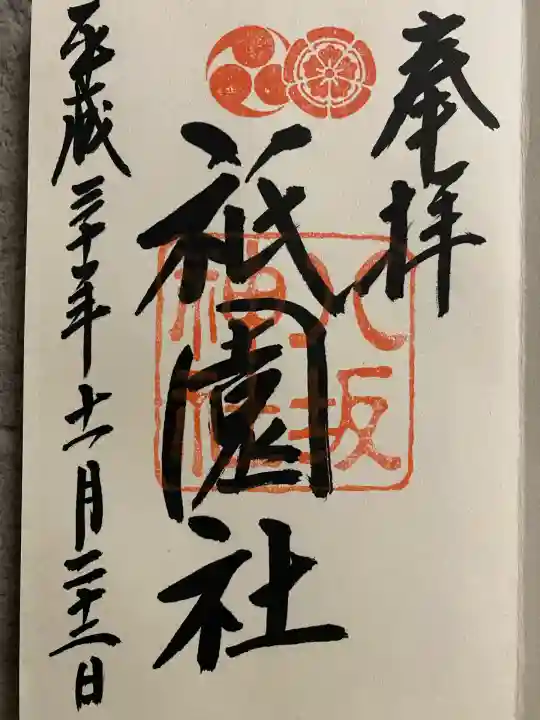 奉拝
祇園社
八坂神社
平成三十年十一月二十三日